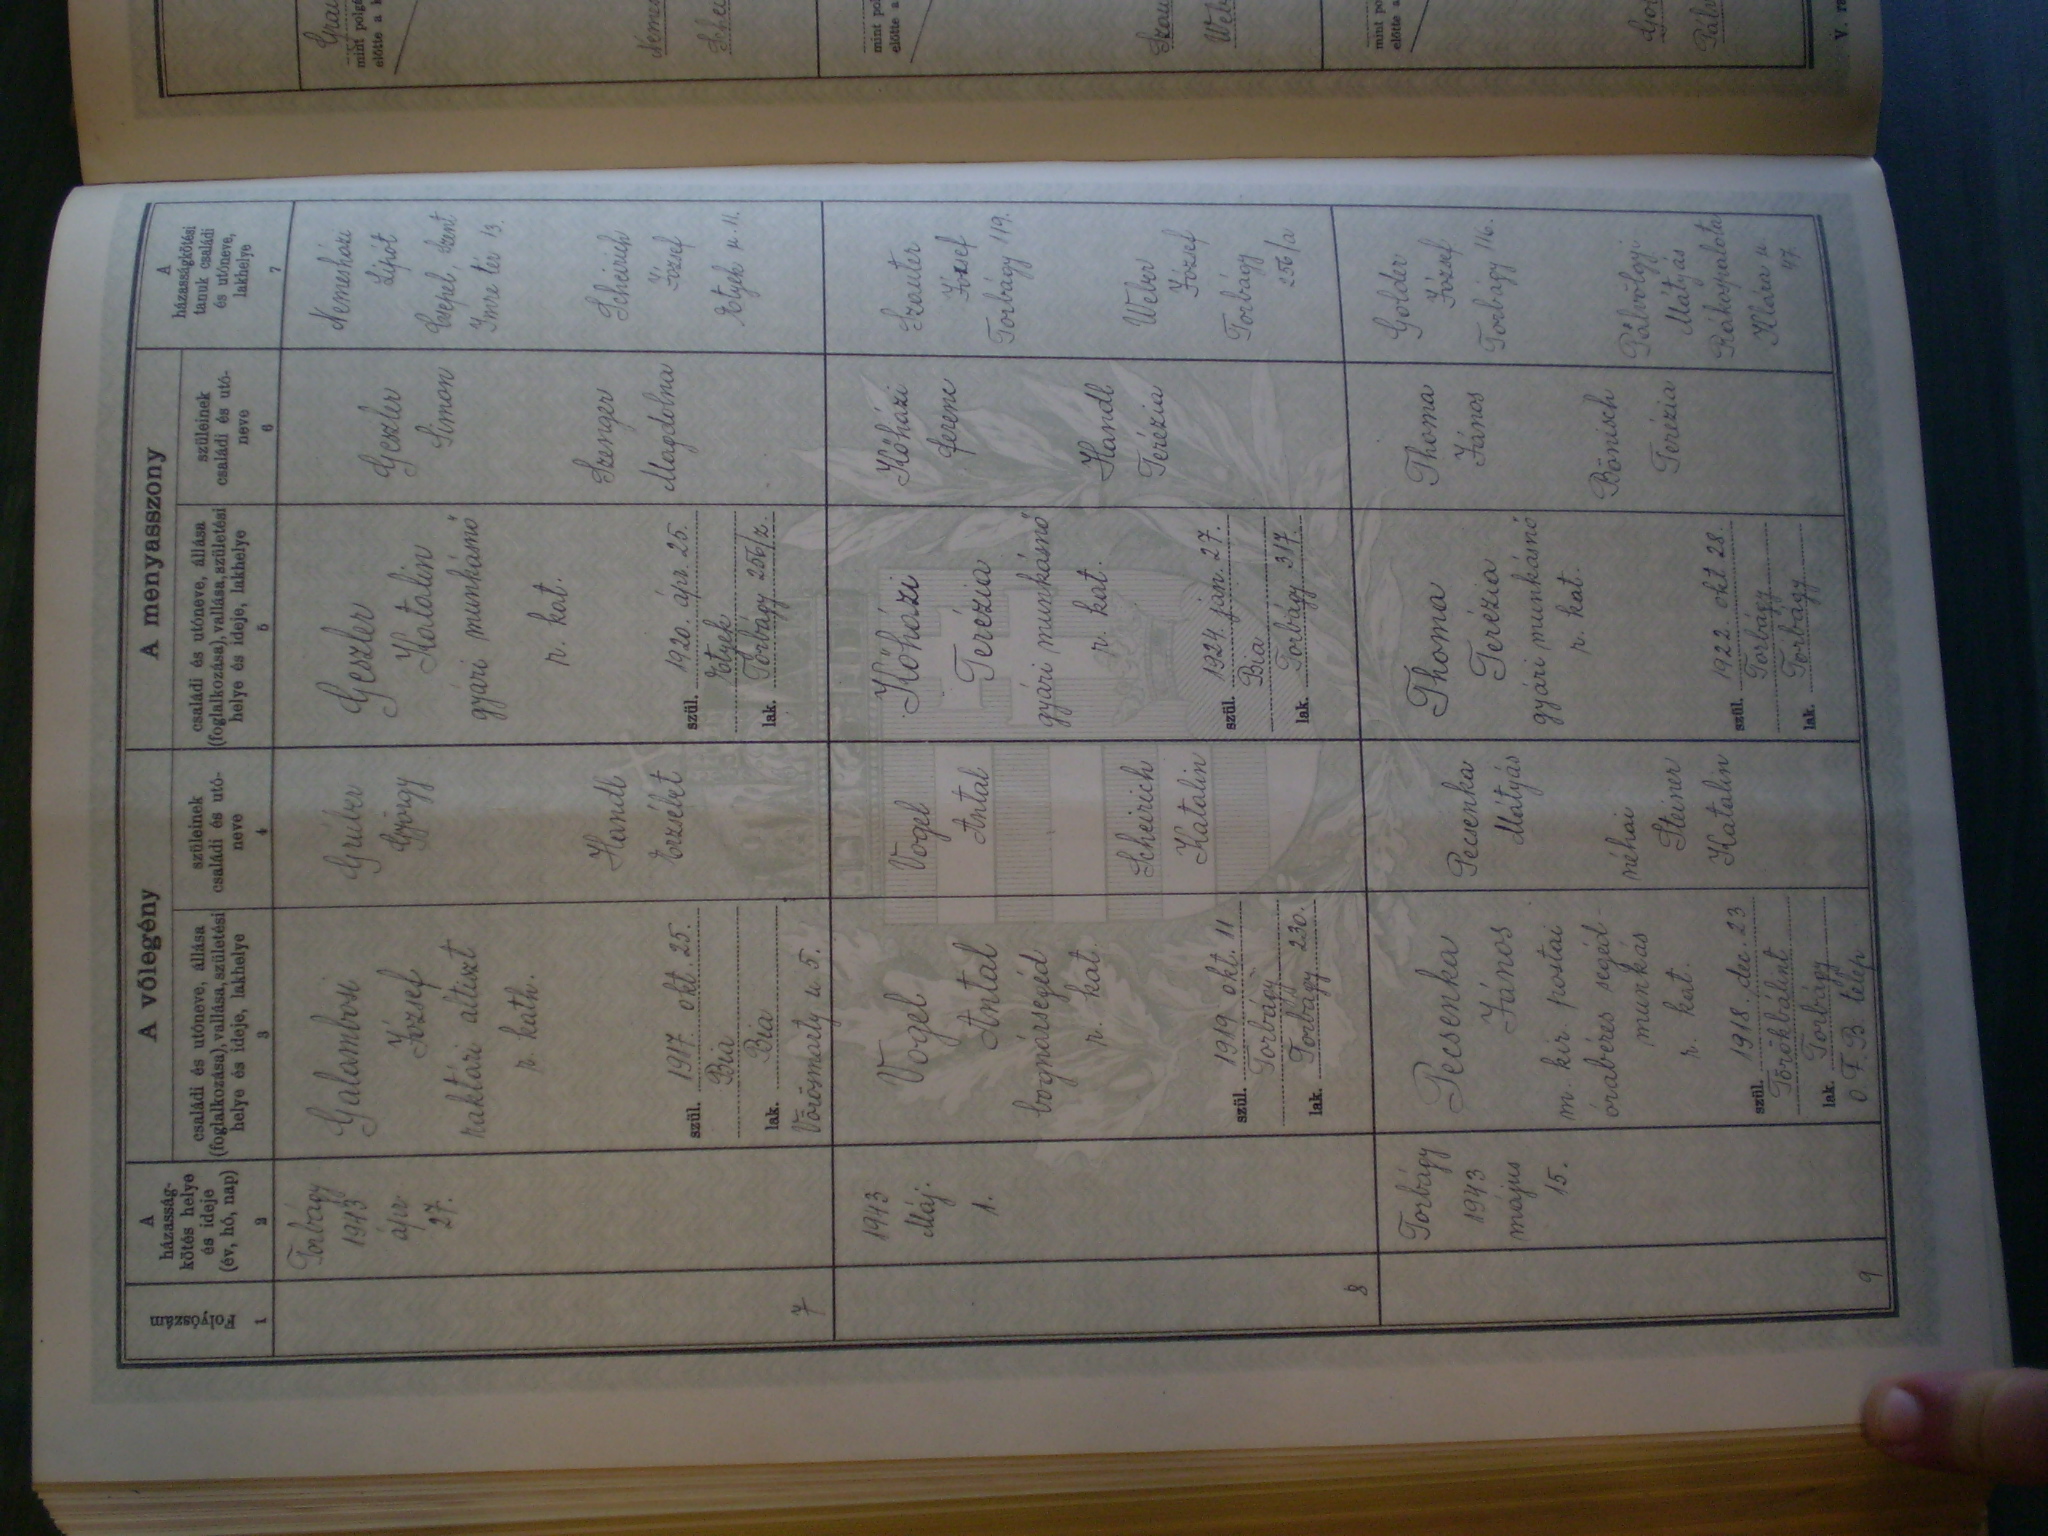 Folyószám
1
A
házasság-
kötés helye
és ideje
(év, hó, nap)
2
A vőlegény
családi és utóneve, állása
(foglalkozása), vallása, születési
helye és ideje, lakhelye
3
szüleinek
családi és utó-
neve
4
A menyasszony
családi és utóneve, állása
(foglalkozása), vallása, születési
helye és ideje, lakhelye
5
szüleinek
családi és utó-
neve
6
A
házasságkötési
tanuk családi
és utóneve,
lakhelye
7
7
Torbágy
1943
ápr.
27.
Galambosi
József
raktári altiszt
r. kath.
szül. 1917 okt. 25.
Bia
lak. Bia
Vörösmarty u. 5.
Gruber
György
Handl
Erzsébet
Geszler
Katalin
gyári munkásnő
r. kat.
szül. 1920. ápr. 25.
Etyek
lak. Torbágy 256/z.
Geszler
Simon
Szenger
Magdolna
Nemesházi
Lipót
Csepel, Szent
Imre tér 13.
Scheirich
József
Etyek u. 11.
8
1943
Máj.
1.
Vogel
Antal
bognársegéd
r. kat.
szül. 1919 okt. 11
Torbágy
lak. Torbágy 230.
Vogel
Antal
Scheirich
Katalin
Kőházi
Terézia
gyári munkásnő
r. kat.
szül. 1924. ján. 27.
Bia
lak. Torbágy 317.
Kőházi
Ferenc
Handl
Terézia
Szauter
József
Torbágy 119.
Weber
József
Torbágy
256/a
9
Torbágy
1943
május
15.
Pecsenka
János
m. kir. postai
órabéres segéd-
munkás
r. kat.
szül. 1918. dec. 23
Törökbálint
lak. Torbágy
O.F.B. telep
Pecsenka
Mátyás
néhai
Steiner
Katalin
Thoma
Terézia
gyári munkásnő
r. kat.
szül. 1922. okt. 28.
Torbágy
lak. Torbágy
Thoma
János
Bönisch
Terézia
Golder
József
Torbágy 116.
Pálvölgyi
Mátyás
Rákospalota
Klára u.
47.
mint polg
előtte a k
mint pol
előtte a
mint po
előtte a
V. r